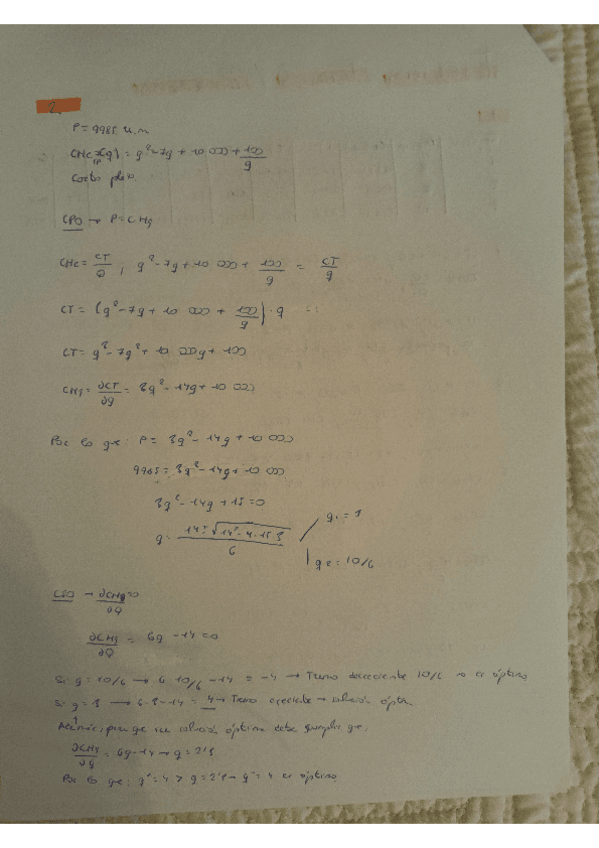 2.
P = 9985 u.m
CMe (q) = q² - 7q + 10 000 + 100/q
Costes
CPO → P = CMg
CMe = CT/Q ; q² - 7q + 10 000 + 100/q = CT/q
CT = (q² - 7q + 10 000 + 100/q) · q
CT = q³ - 7q² + 10 000q + 100
CMg = ∂CT/∂q = 3q² - 14q + 10 000
Por lo que: P = 3q² - 14q + 10 000
9985 = 3q² - 14q + 10 000
3q² - 14q + 15 = 0
q = 14 ± √14² - 4·15·3 / 6
q₁ = 3
q₂ = 10/6
CSO → ∂CMg/∂Q > 0
∂CMg/∂Q = 6q - 14 = 0
Si q = 10/6 → 6·10/6 - 14 = -4 → Tramo decreciente 10/6 no es óptimo
Si q = 3 → 6·3 - 14 = 4 → Tramo creciente → solución óptima.
Además, para que sea solución óptima debe cumplir que:
∂CMg/∂q = 6q - 14 → q = 2'3
Por lo que: q* = 4 > q = 2'3 → q* = 4 es óptimo